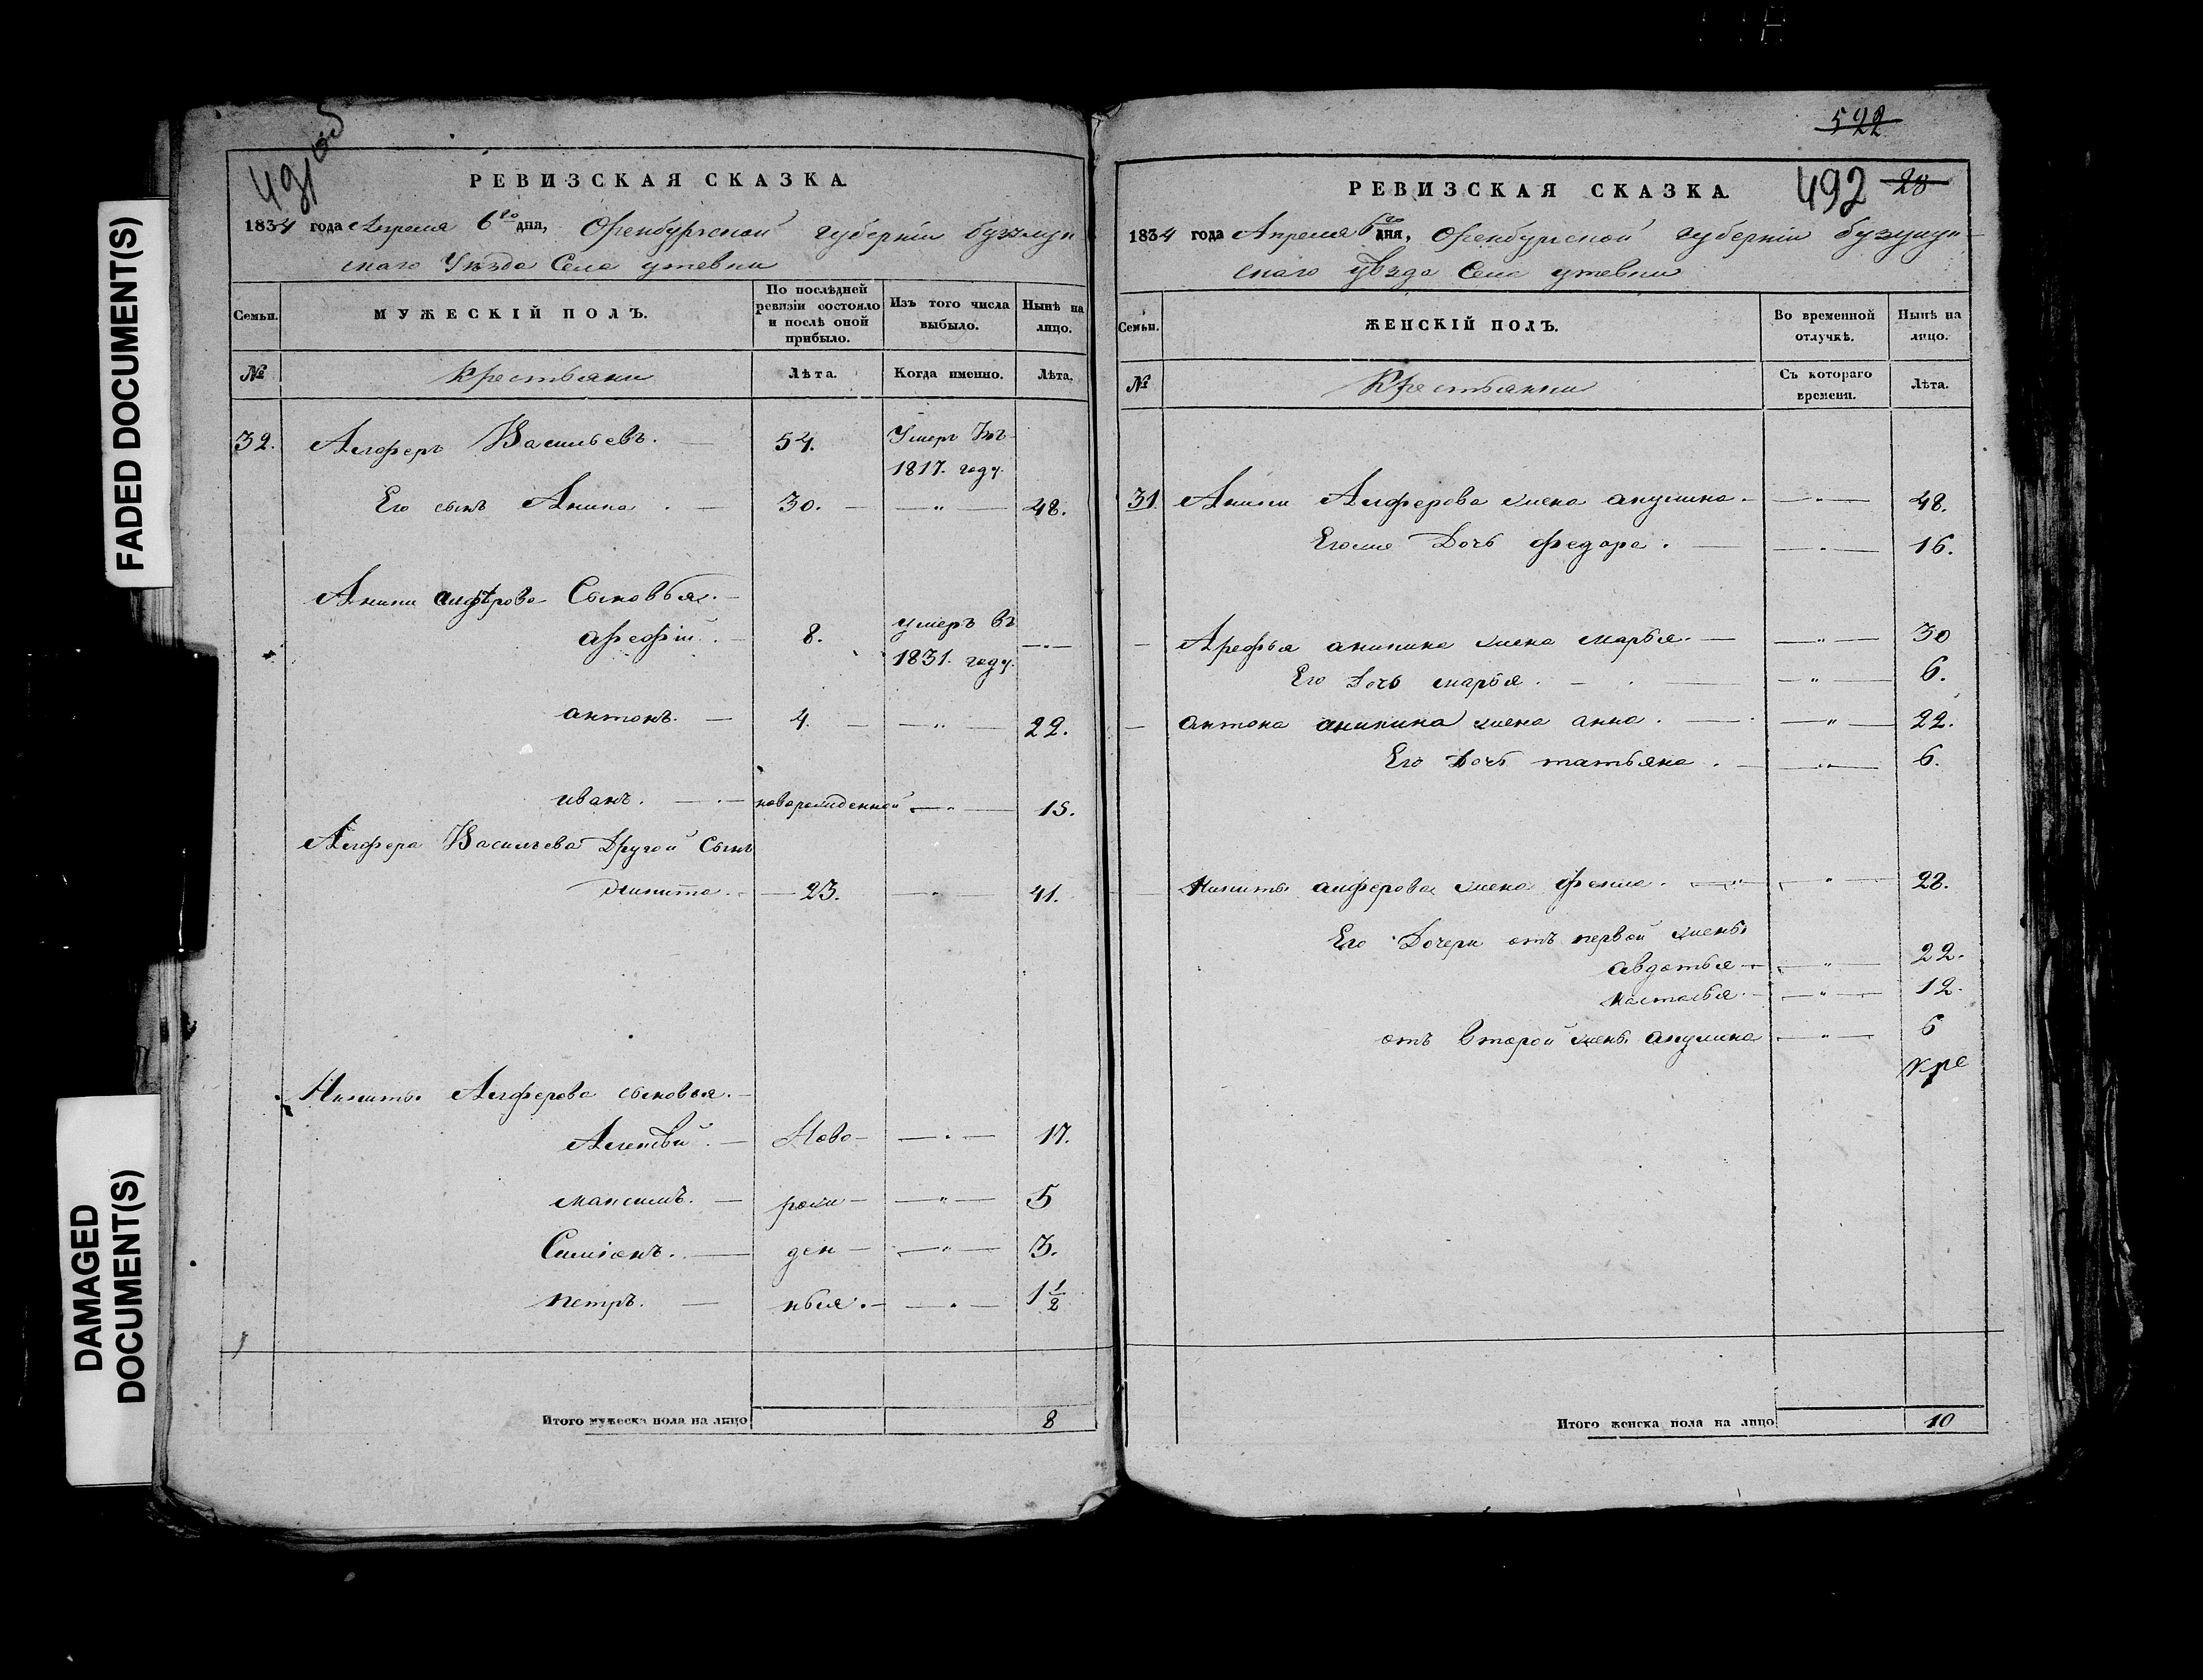 FADED DOCUMENT(S)
DAMAGED
DOCUMENT(S)
491 об
РЕВИЗСКАЯ СКАЗКА
1834 года Апреля 6го дня, Оренбургской губернии бузулук
скаго Уѣзда Села утевки
Семьи.
МУЖЕСКІЙ ПОЛЪ.
По послѣдней
ревизіи состояло
и послѣ оной
прибыло.
Изъ того числа
выбыло.
Нынѣ на
лицо.
№
Крестьяни
Лѣта.
Когда именно.
Лѣта.
32. Алферъ Васильевъ. 54. Умеръ въ
1817. году.
Его сынъ Аника. 30. — " — 48.
Аники алферова Сыновья.
арефій. 8. умеръ въ
1831. году. — " —
антонъ. 4. — " — 22.
иванъ. новорожденной — " — 15.
Алфера Васильева Другой Сынъ
никита. 23. — " — 41.
Никиты Алферова сыновья.
Алексѣй. Ново- — " — 17.
максимъ. рож- — " — 5
Симіонъ. ден- — " — 3.
петръ. ныя. — " — 1 1/2
Итого мужеска пола на лицо 8
522
492 28
РЕВИЗСКАЯ СКАЗКА
1834 года Апреля 6го дня, Оренбургской губерніи бузулук-
скаго уѣзда Села утевки
Семьи.
ЖЕНСКІЙ ПОЛЪ.
Во временной
отлучкѣ.
Нынѣ на
лицо.
№
Крестьянки
Съ котораго
времени.
Лѣта.
31. Аники Алферова жена акулина. — " — 48.
Егоже Дочь федора. — " — 16.
Арефья аникина жена марья. — " — 30
Его Дочь марья. — " — 6.
антона аникина жена анна. — " — 22.
Его Дочь татьяна. — " — 6.
Никиты алферова жена фекла. — " — 28.
Его Дочери отъ первой жены
авдотья — " — 22.
настасья — " — 12.
отъ второй жены акулина — " — 6
кре
Итого женска пола на лицо 10